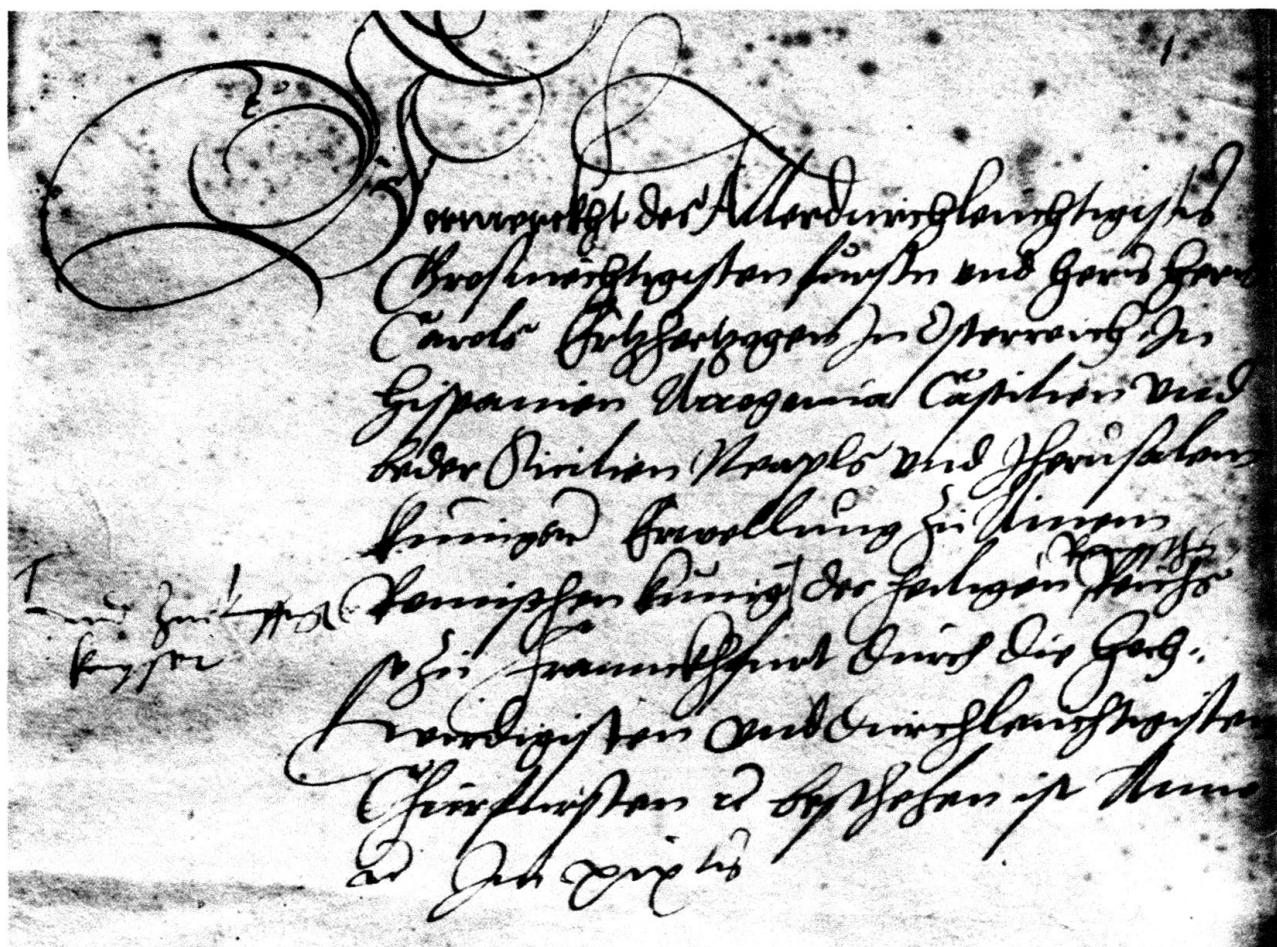 1
Vermerckht des Allerdurchleuchtigistn
Grosmechtigisten fursten vnd herrn hern
Carols Ertzhertzogen In Osterreich In
Hispanien Arragonia Castilien vnd
beder Sicilien Neapls vnd Jherusalem
kunigen Erwellung zu Ainem
Romischen kunig des heiligen Reichs
vnd
keyser
so zu Frannckhfurt durch die Hoch-
wirdigisten vnd durchleuchtigisten
Churfursten ꝛc beschehen ist Anno
ꝛc Im xixten